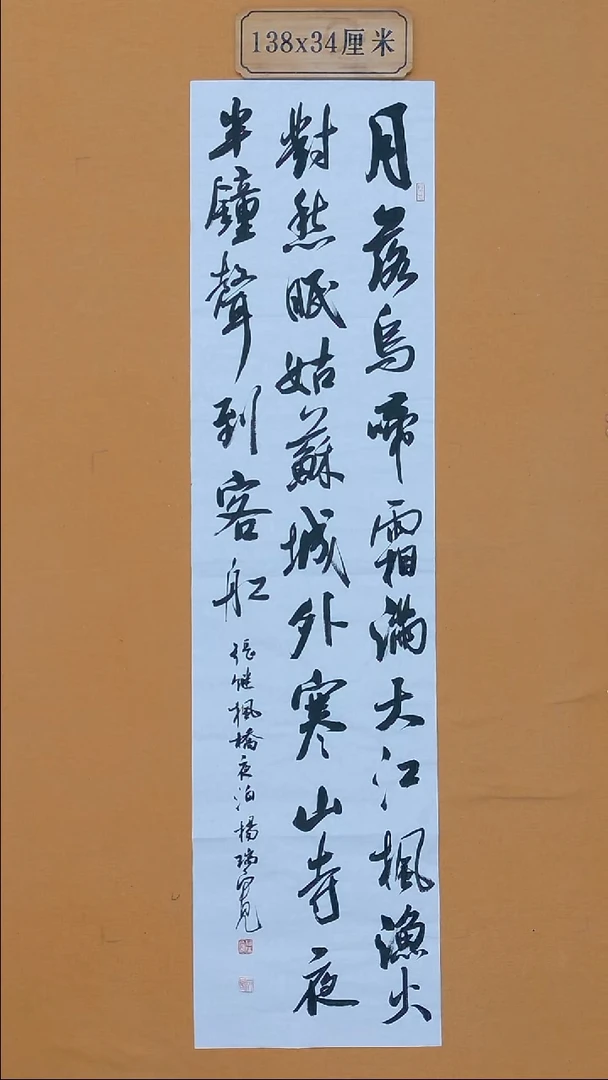 138x34厘米
月落烏啼霜滿天江楓漁火
對愁眠姑蘇城外寒山寺夜
半鐘聲到客舡
張继楓橋夜泊楊瑞